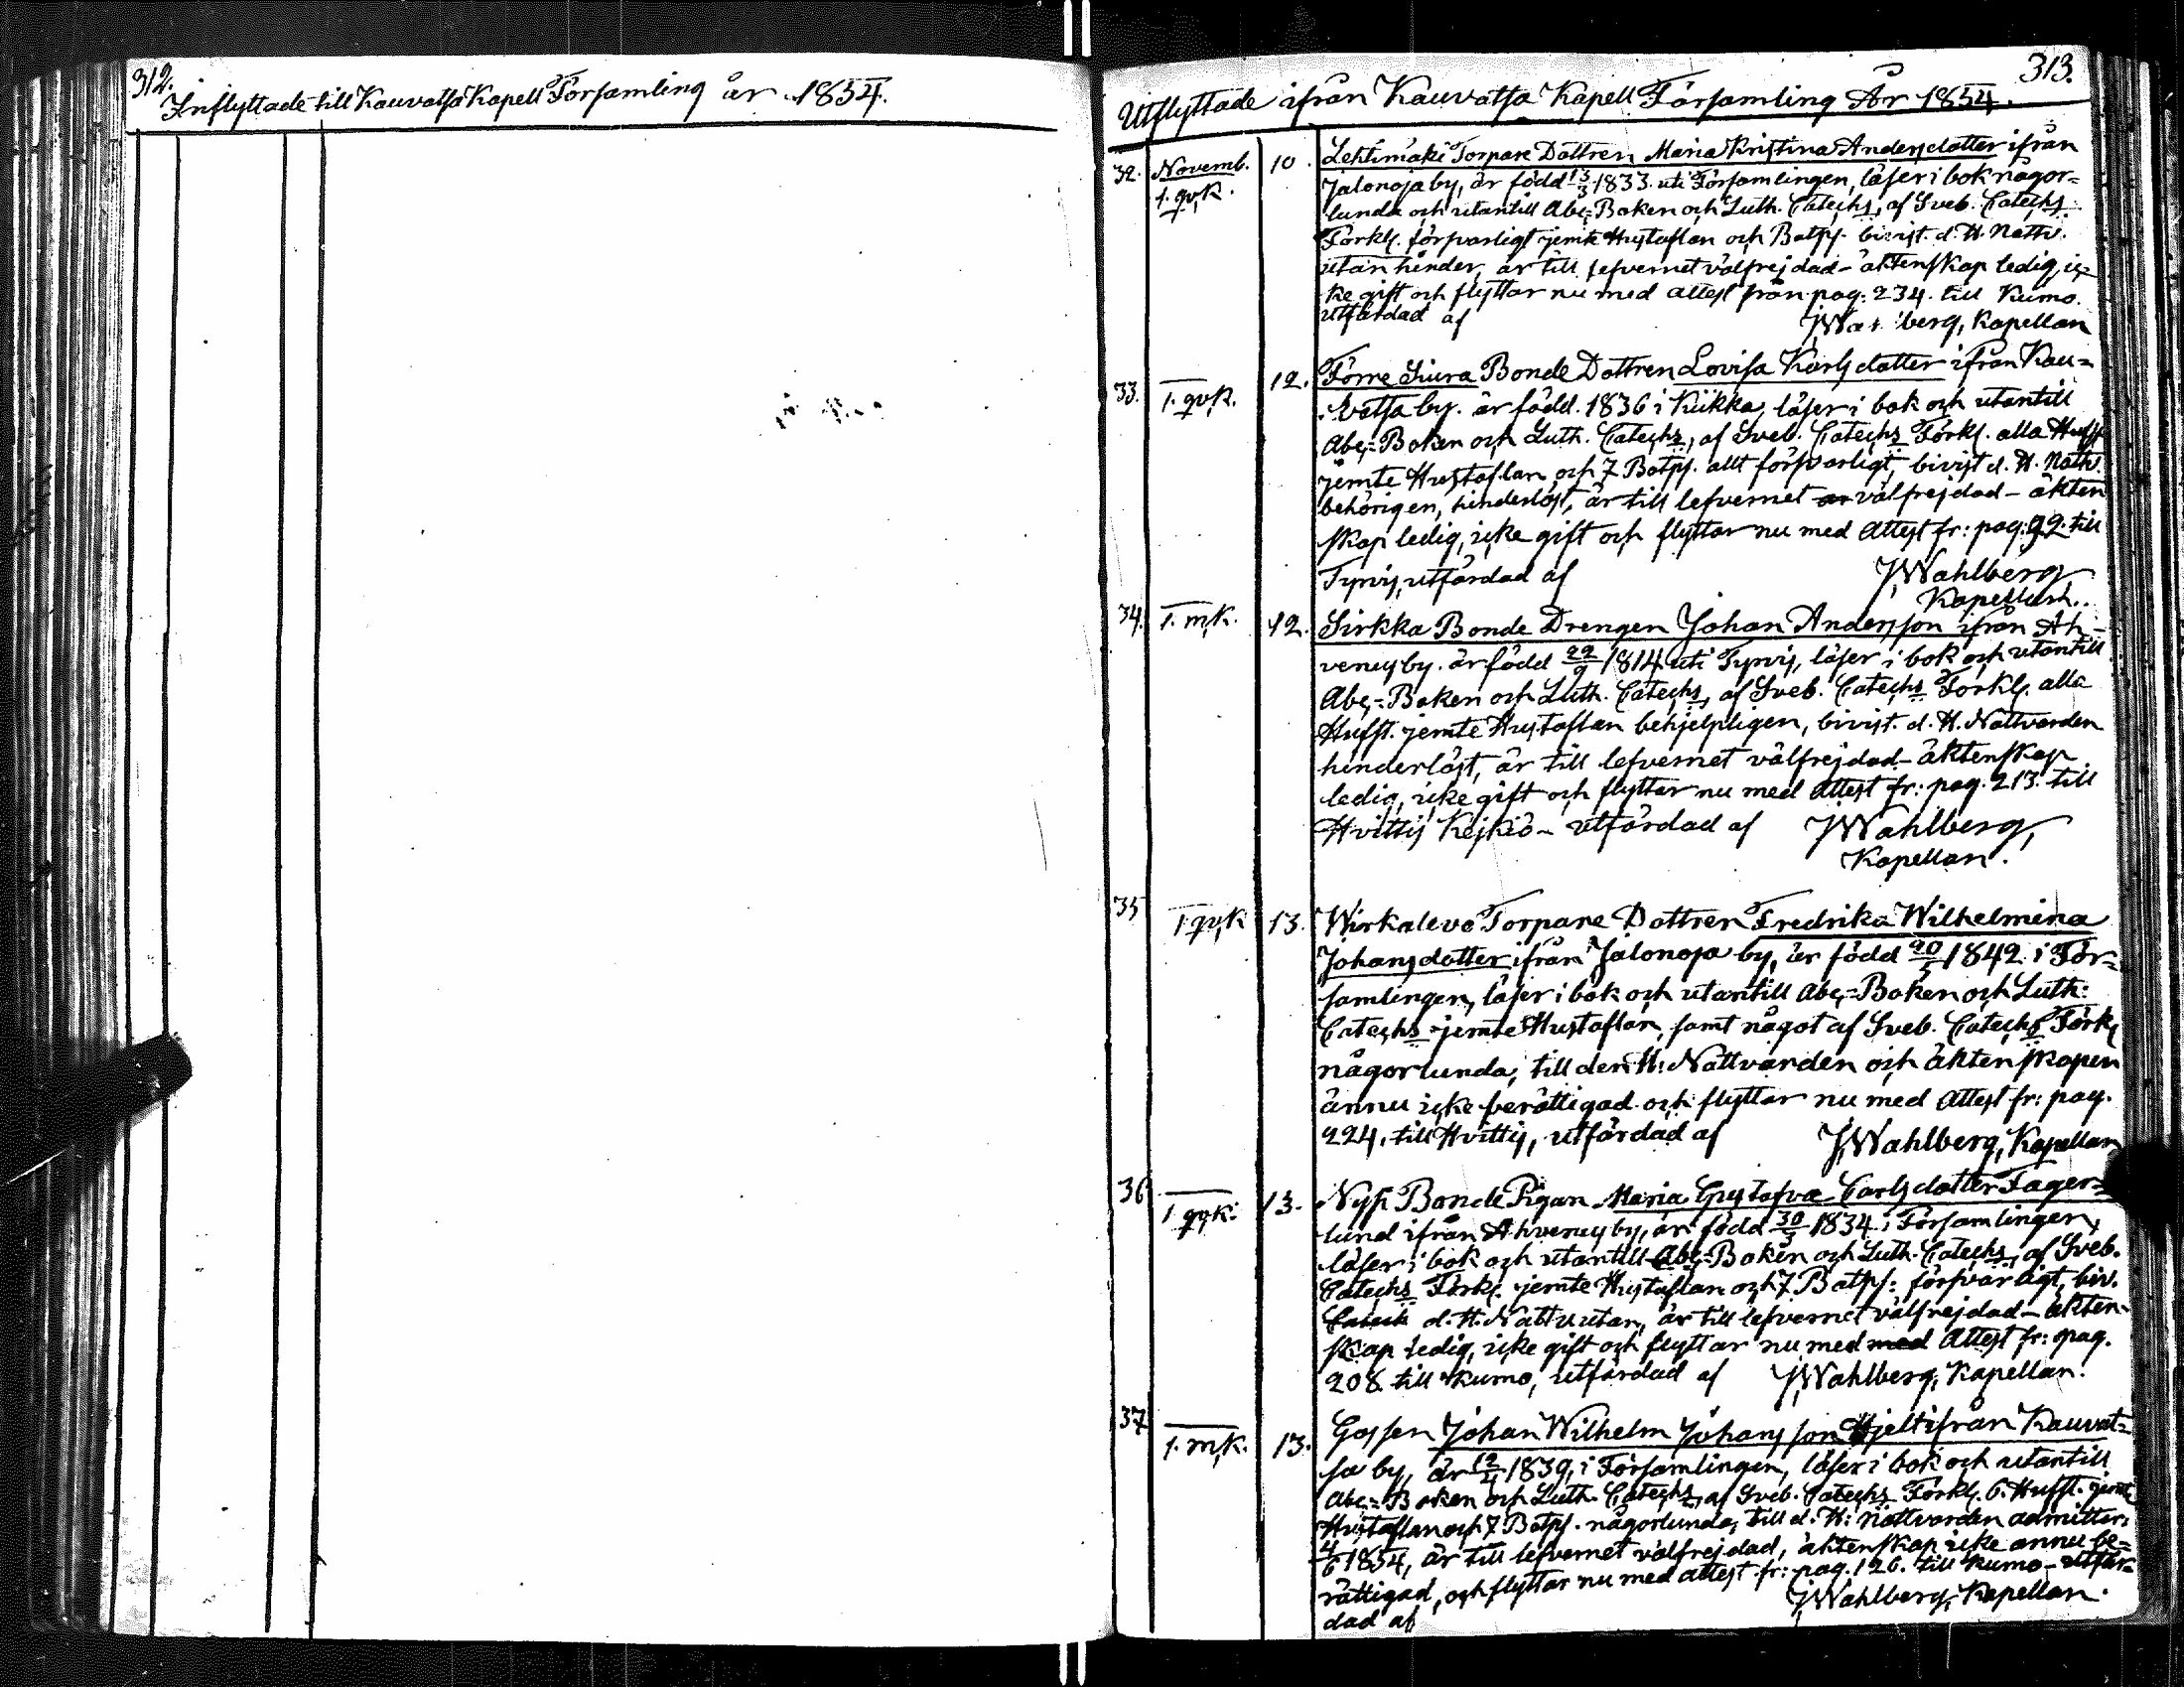 312.
Inflyttade till Kauvatsa Kapell Församling år 1854.
313.
Utflyttade ifrån Kauvatsa Kapell Församling År 1854.
32. Novemb. 10. Lehtimäki Torpare Dottren Maria Kristina Andersdotter ifrån
1. qvk. Jalonoja by, är född 13/3 1833. uti Församlingen, läser i bok någor=
lunda och utantill Abc=Boken och Luth. Catechs, af Sveb. Catechs
Förkl. försvarligt jemte Hustaflan och Botps. bivist. d. H. Nattv.
utan hinder, är till lefvernet välfrejdad – äktenskap ledig, ic=
ke gift och flyttar nu med attest från pag. 234. till Kumo.
utfärdad af JWahlberg, Kapellan
33. 1. qvk. 12. Förre Siura Bonde Dottren Lovisa Karlsdotter ifrån Kau=
vatsa by. är född. 1836 i Kiikka, läser i bok och utantill
Abc=Boken och Luth. Catechs, af Sveb. Catechs Förkl. alla Hufst
jemte Hustaflan och 7 Botps. allt försvarligt, bivist d. H. Nattv.
behörigen, hinderlöst, är till lefvernet är välfrejdad – äkten
skap ledig, icke gift och flyttar nu med Attest fr: pag. 92. till
Tyrvis, utfärdad af JWahlberg
Kapellan.
34. 1. mk. 12. Sirkka Bonde Drengen Johan Andersson ifrån Ah-
venus by. är född 22/9 1814 uti Tyrvis, läser i bok och utantill
Abc=Boken och Luth. Catechs, af Sveb. Catechs Förkl. alla
Hufst. jemte Hustaflan behjelpligen, bivist. d. H. Nattvarden
hinderlöst, är till lefvernet välfrejdad – äktenskap
ledig, icke gift och flyttar nu med Attest fr: pag. 213. till
Hvittis Kejkiö – utfärdad af JWahlberg,
Kapellan.
35 1 qvk 13. Wirkalevo Torpare Dottren Fredrika Wilhelmina
Johansdotter ifrån Jalonoja by, är född 20/5 1842 i För=
samlingen, läser i bok och utantill Abc=Boken och Luth:
Catechs jemte Hustaflan, samt något af Sveb. Catechs Förkl
någorlunda, till den H: Nattvarden och äktenskapen
ännu icke berättigad och flyttar nu med Attest fr: pag.
224. till Hvittis, utfärdad af JWahlberg, Kapellan
36 1 qvk. 13. Nyss Bonde Pigan Maria Gustafva Carlsdotter Fager=
lund ifrån Ahvenus by, är född 30/3 1834 i Församlingen,
läser i bok och utantill Abc=Boken och Luth. Catechs, af Sveb.
Catechs Förkl. jemte Hustaflan och 7 Botps: försvarligt, biv.
d. H. Nattv utan, är till lefvernet välfrejdad – äkten-
skap ledig, icke gift och flyttar nu med med Attest fr: pag.
208. till Kumo, utfärdad af JWahlberg, Kapellan.
37 1. mk. 13. Gossen Johan Wilhelm Johansson Hjelt ifrån Kauvat=
sa by, är 12/4 1839, i Församlingen, läser i bok och utantill
Abc=Boken och Luth. Catechs, af Sveb. Catechs Förkl. 6. Hufst. jemte
Hustaflan och 7 Botps. någorlunda, till d. H: Nattvarden admitter:
4/6 1854, är till lefvernet välfrejdad, äktenskap icke ännu be=
rättigad, och flyttar nu med attest fr: pag. 126. till Kumo – utfär=
dad af JWahlberg, Kapellan.